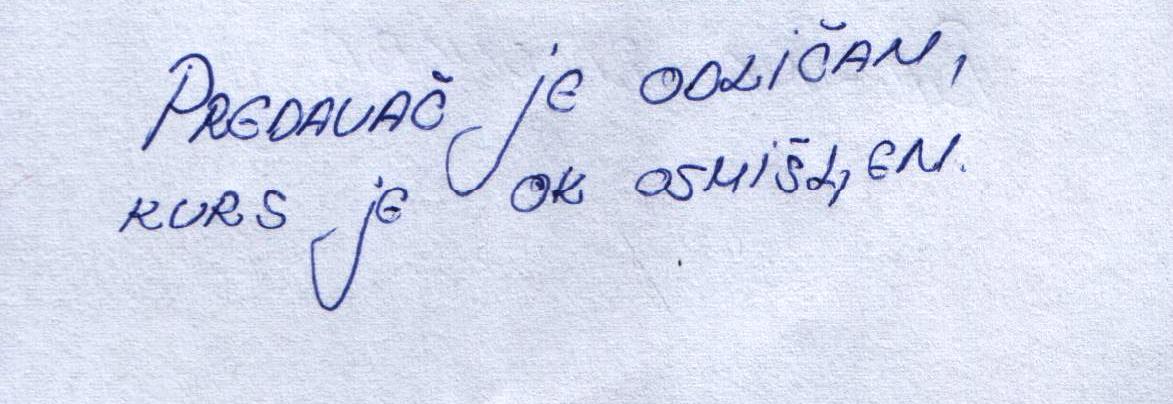 PREDAVAČ je ODLIČAN,
KURS je OK OSMIŠLJEN.